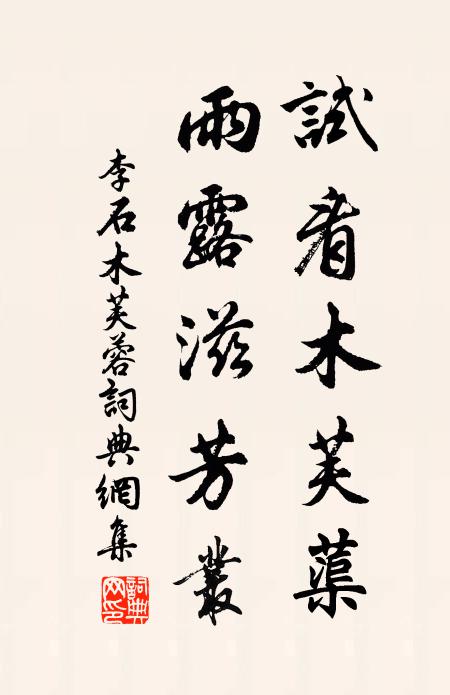 試看木芙蕖
雨露滋芳叢
李石木芙蓉詞典網集
詞典網印